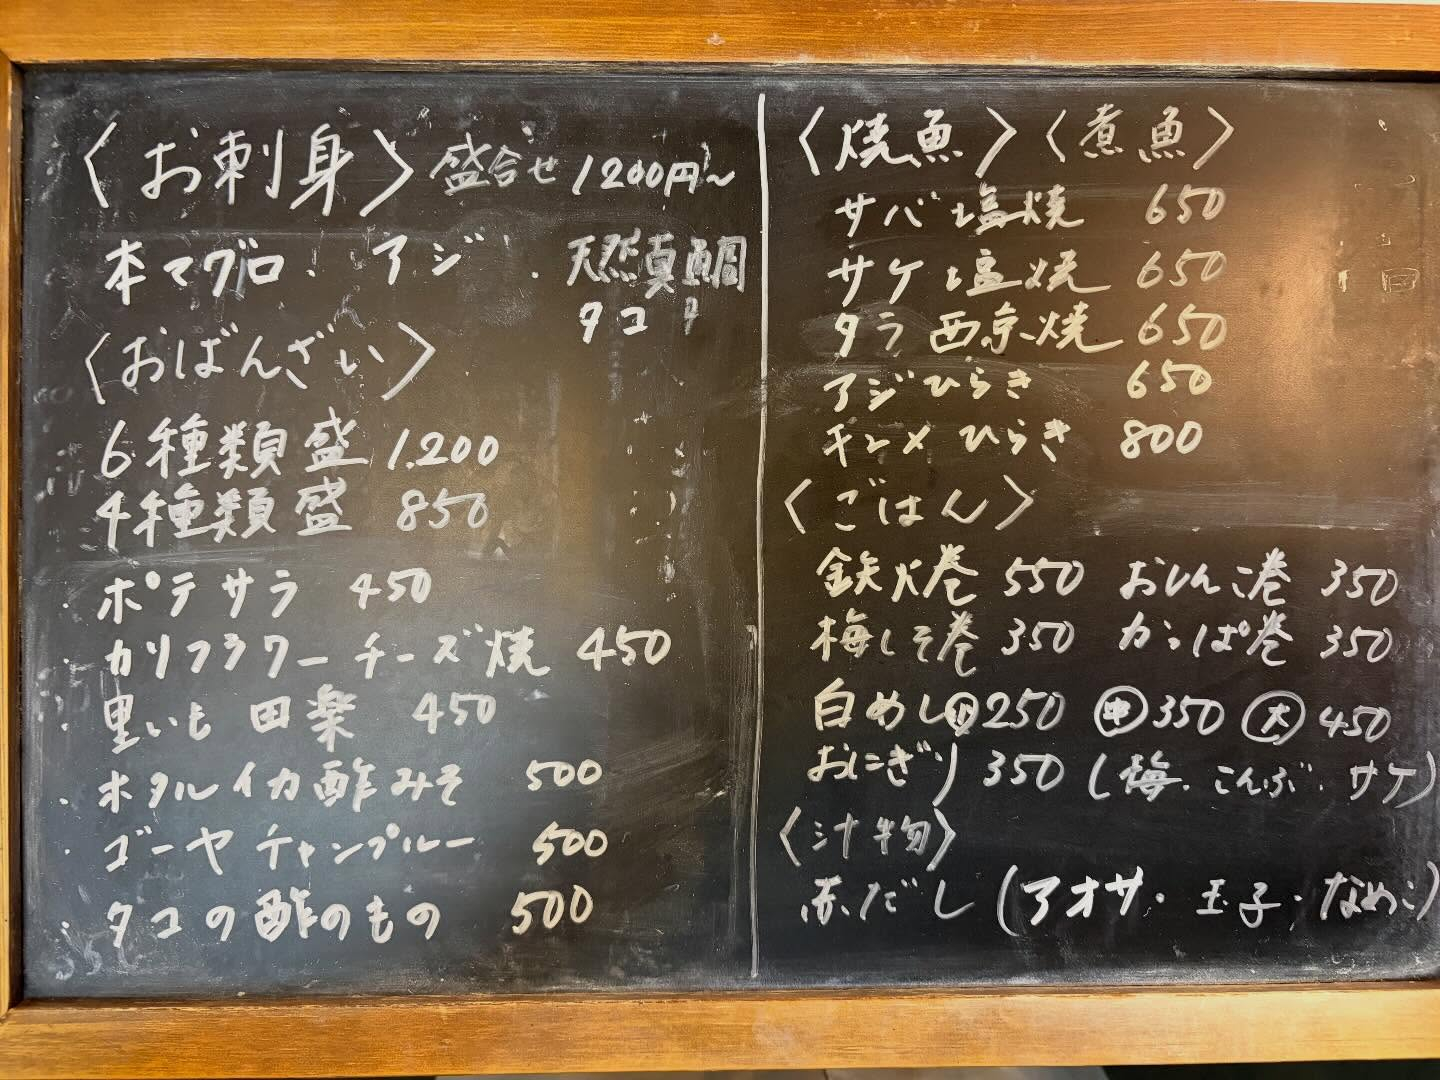 〈お刺身〉盛合せ 1200円〜
本マグロ・アジ・天然真鯛
タコ
〈おばんざい〉
6種類盛 1.200
4種類盛 850
・ポテサラ 450
・カリフラワーチーズ焼 450
・里いも田楽 450
・ホタルイカ酢みそ 500
・ゴーヤチャンプルー 500
・タコの酢のもの 500
〈焼魚〉〈煮魚〉
サバ塩焼 650
サケ塩焼 650
タラ西京焼 650
アジひらき 650
キンメひらき 800
〈ごはん〉
鉄火巻 550 おしんこ巻 350
梅しそ巻 350 かっぱ巻 350
白めし小250 中350 大450
おにぎり 350 (梅・こんぶ・サケ)
〈汁物〉
赤だし(アオサ・玉子・なめこ)